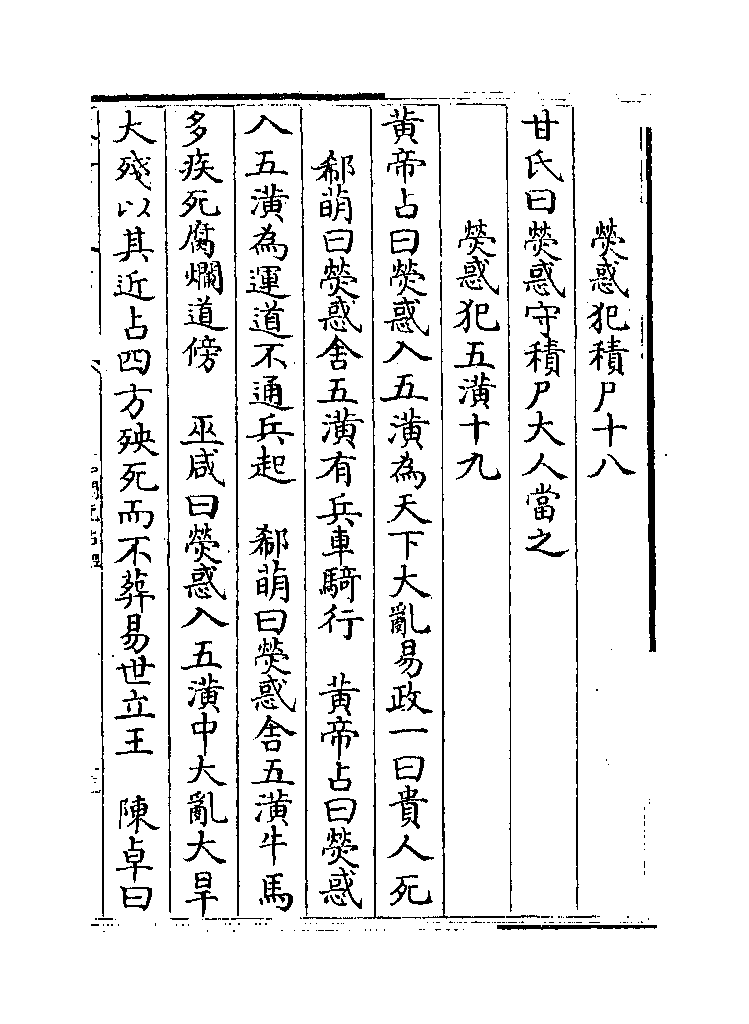 熒惑犯積尸十八
甘氏曰熒惑守積尸大人當之
熒惑犯五潢十九
黃帝占曰熒惑入五潢為天下大亂易政一曰貴人死
郗萌曰熒惑舍五潢有兵車騎行　黃帝占曰熒惑
入五潢為運道不通兵起　郗萌曰熒惑舍五潢牛馬
多疾死腐爛道傍　巫咸曰熒惑入五潢中大亂大旱
大殘以其近占四方殃死而不葬易世立王　陳卓曰